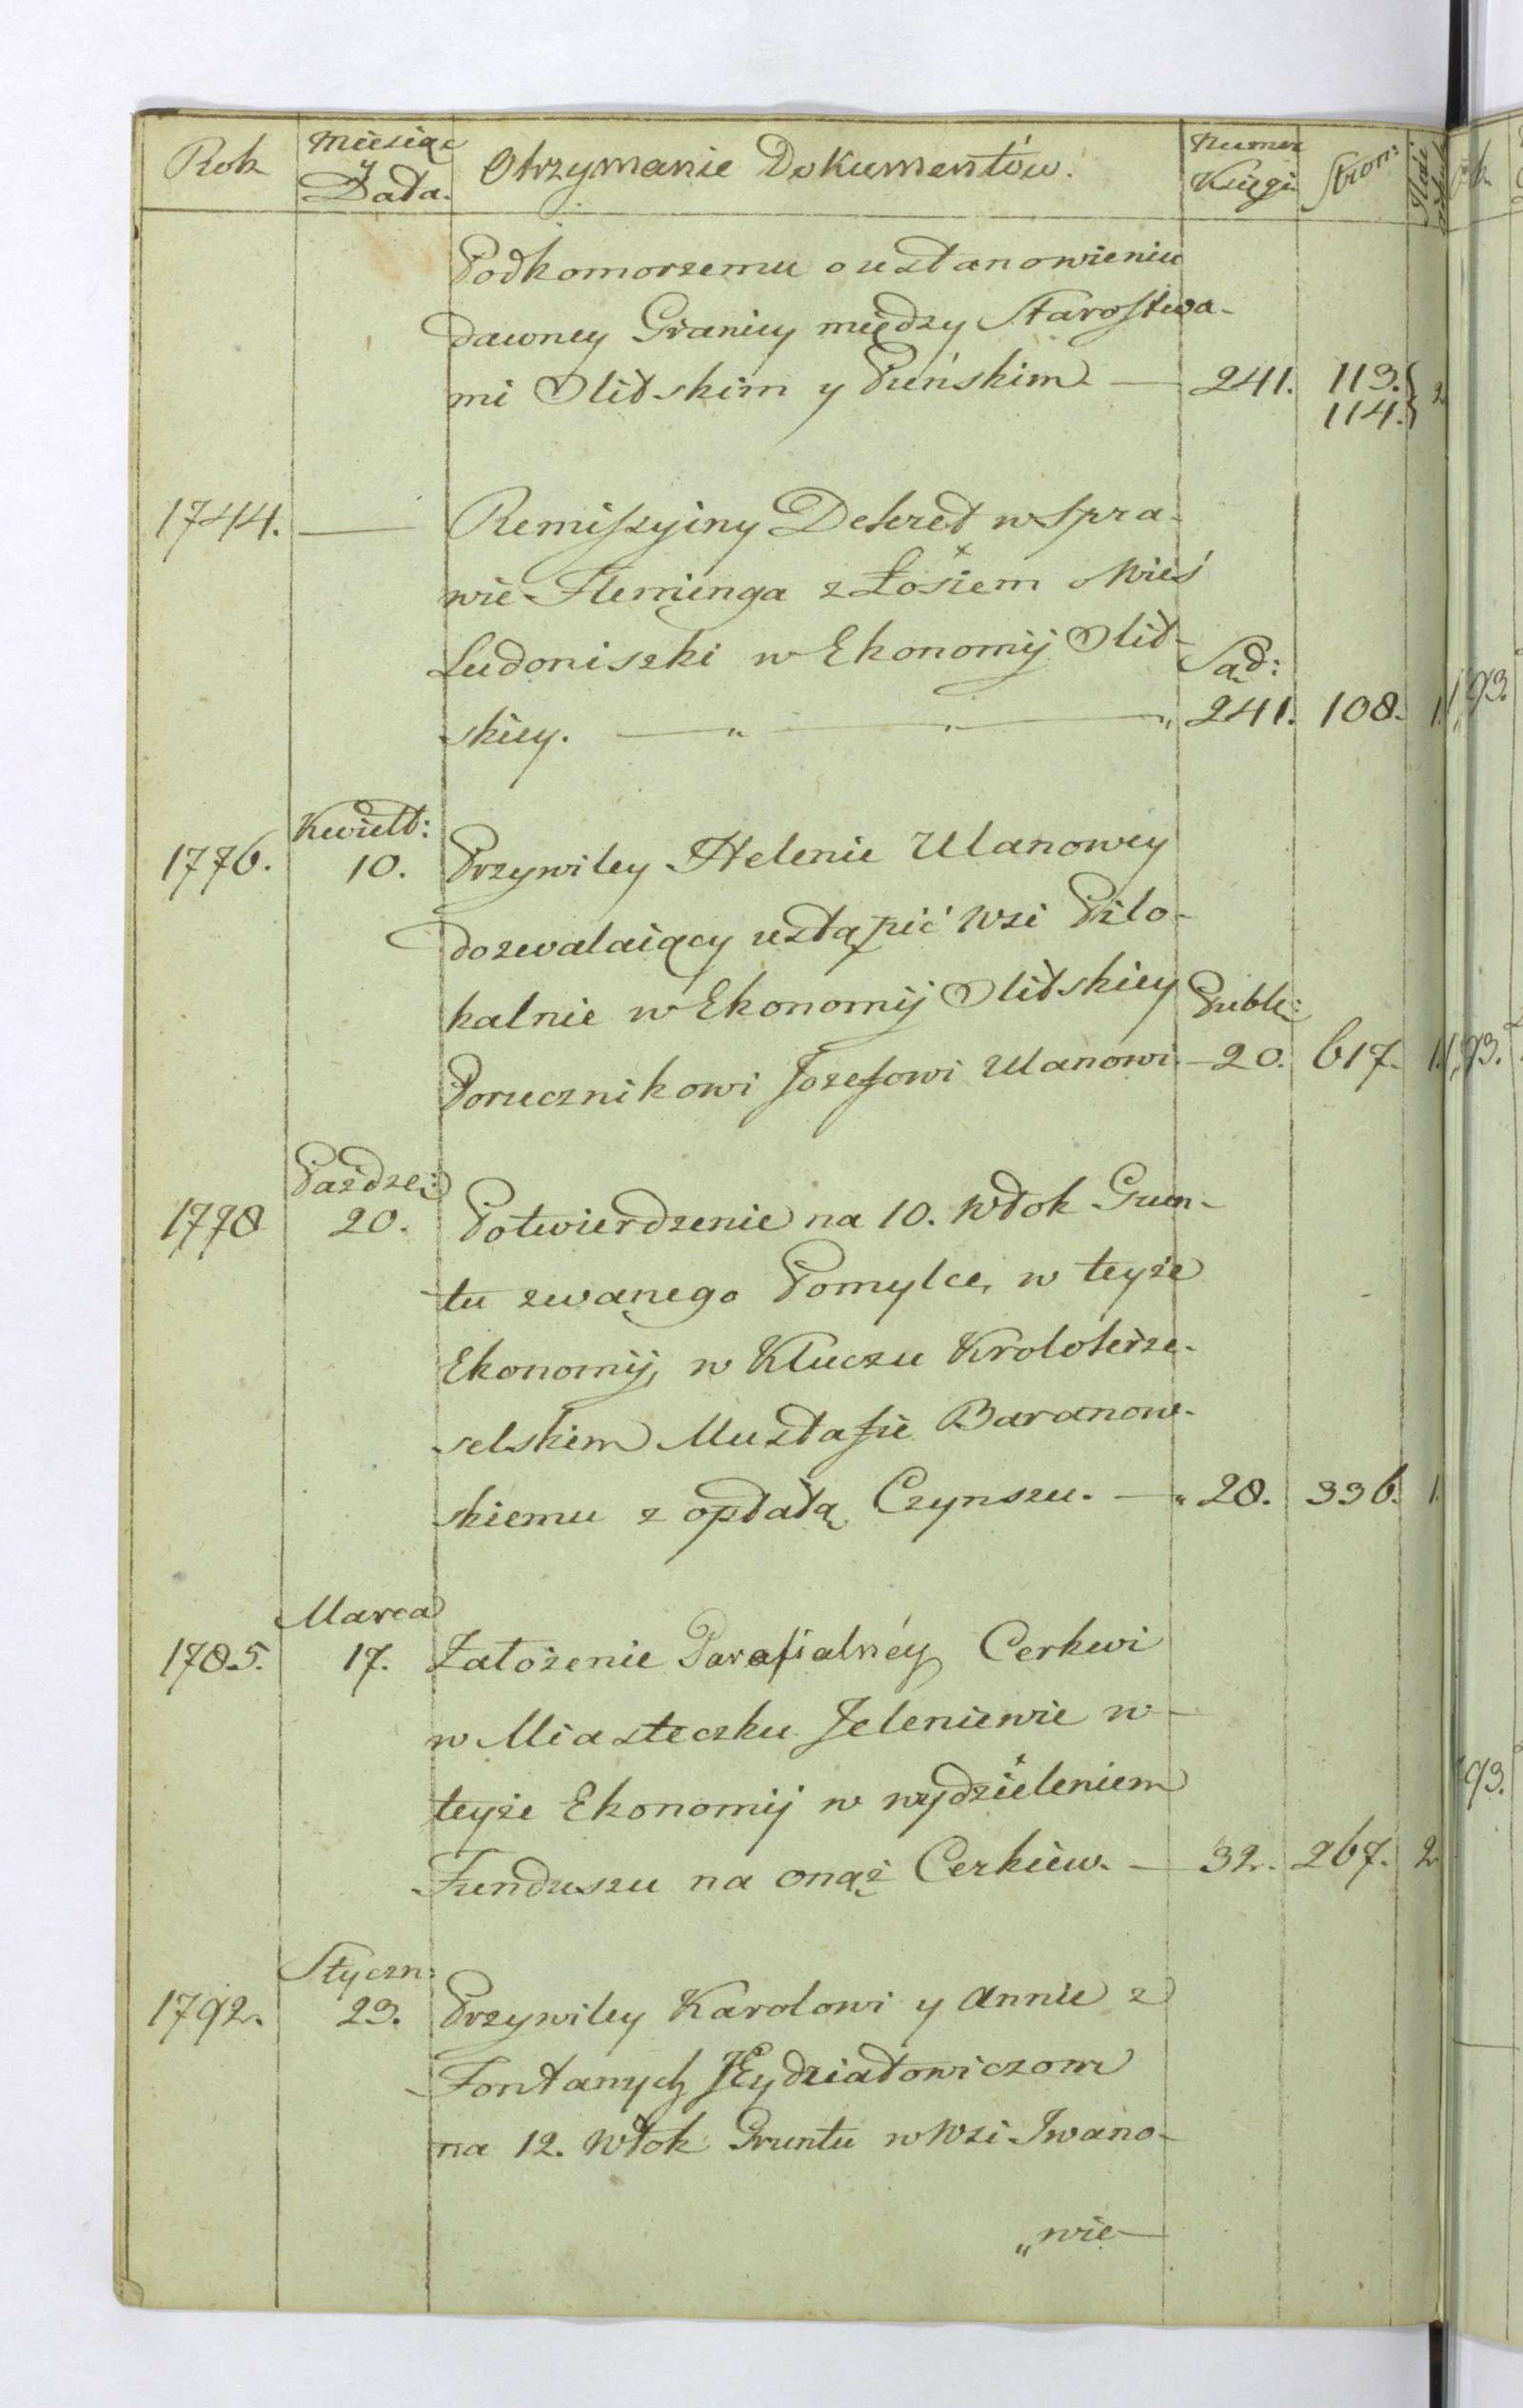 Rok Miesiąc y Data. Otrzymanie Dokumentów. Numer Księgi Stron:
Podkomorzemu o ustanowieniu
dawney Granicy między Starostwa-
mi Olitskim y Puńskim — 241. 113.
114. } 2
1744. — Remiszyiny Dekret w Spra-
wie Fleminga z Łosiem o Wieś
Ludoniszki w Ekonomij Olit- Sąd:
skiey. — „ — „ — „ 241. 108. 1.
Kwiet:
1776. 10. Przywiley Helenie Ulanowey
dozwalaiący ustąpić Wsi Piło-
kalnie w Ekonomij Olitskiey Publi:
Porucznikowi Jozefowi Ulanowi. — 20. 617. 1.
Pazdze:
1778 20. Potwierdzenie na 10. Włok Grun-
tu zwanego Pomylce, w teyże
Ekonomij, w Kluczu Krolokrze-
selskim Mustafie Baranow-
skiemu z opłatą Czynszu. — „ 28. 336. 1.
Marca
1785. 17. Założenie Parafialnéy Cerkwi
w Miasteczku Jeleniewie w
teyże Ekonomij w wydzieleniem
Funduszu na onąż Cerkiew. — 32. 267. 2
Styczn:
1792. 23. Przywiley Karolowi y Annie z
Fontanych Eydziatowiczom
na 12. Włok Gruntu w Wsi Iwano-
„wie —